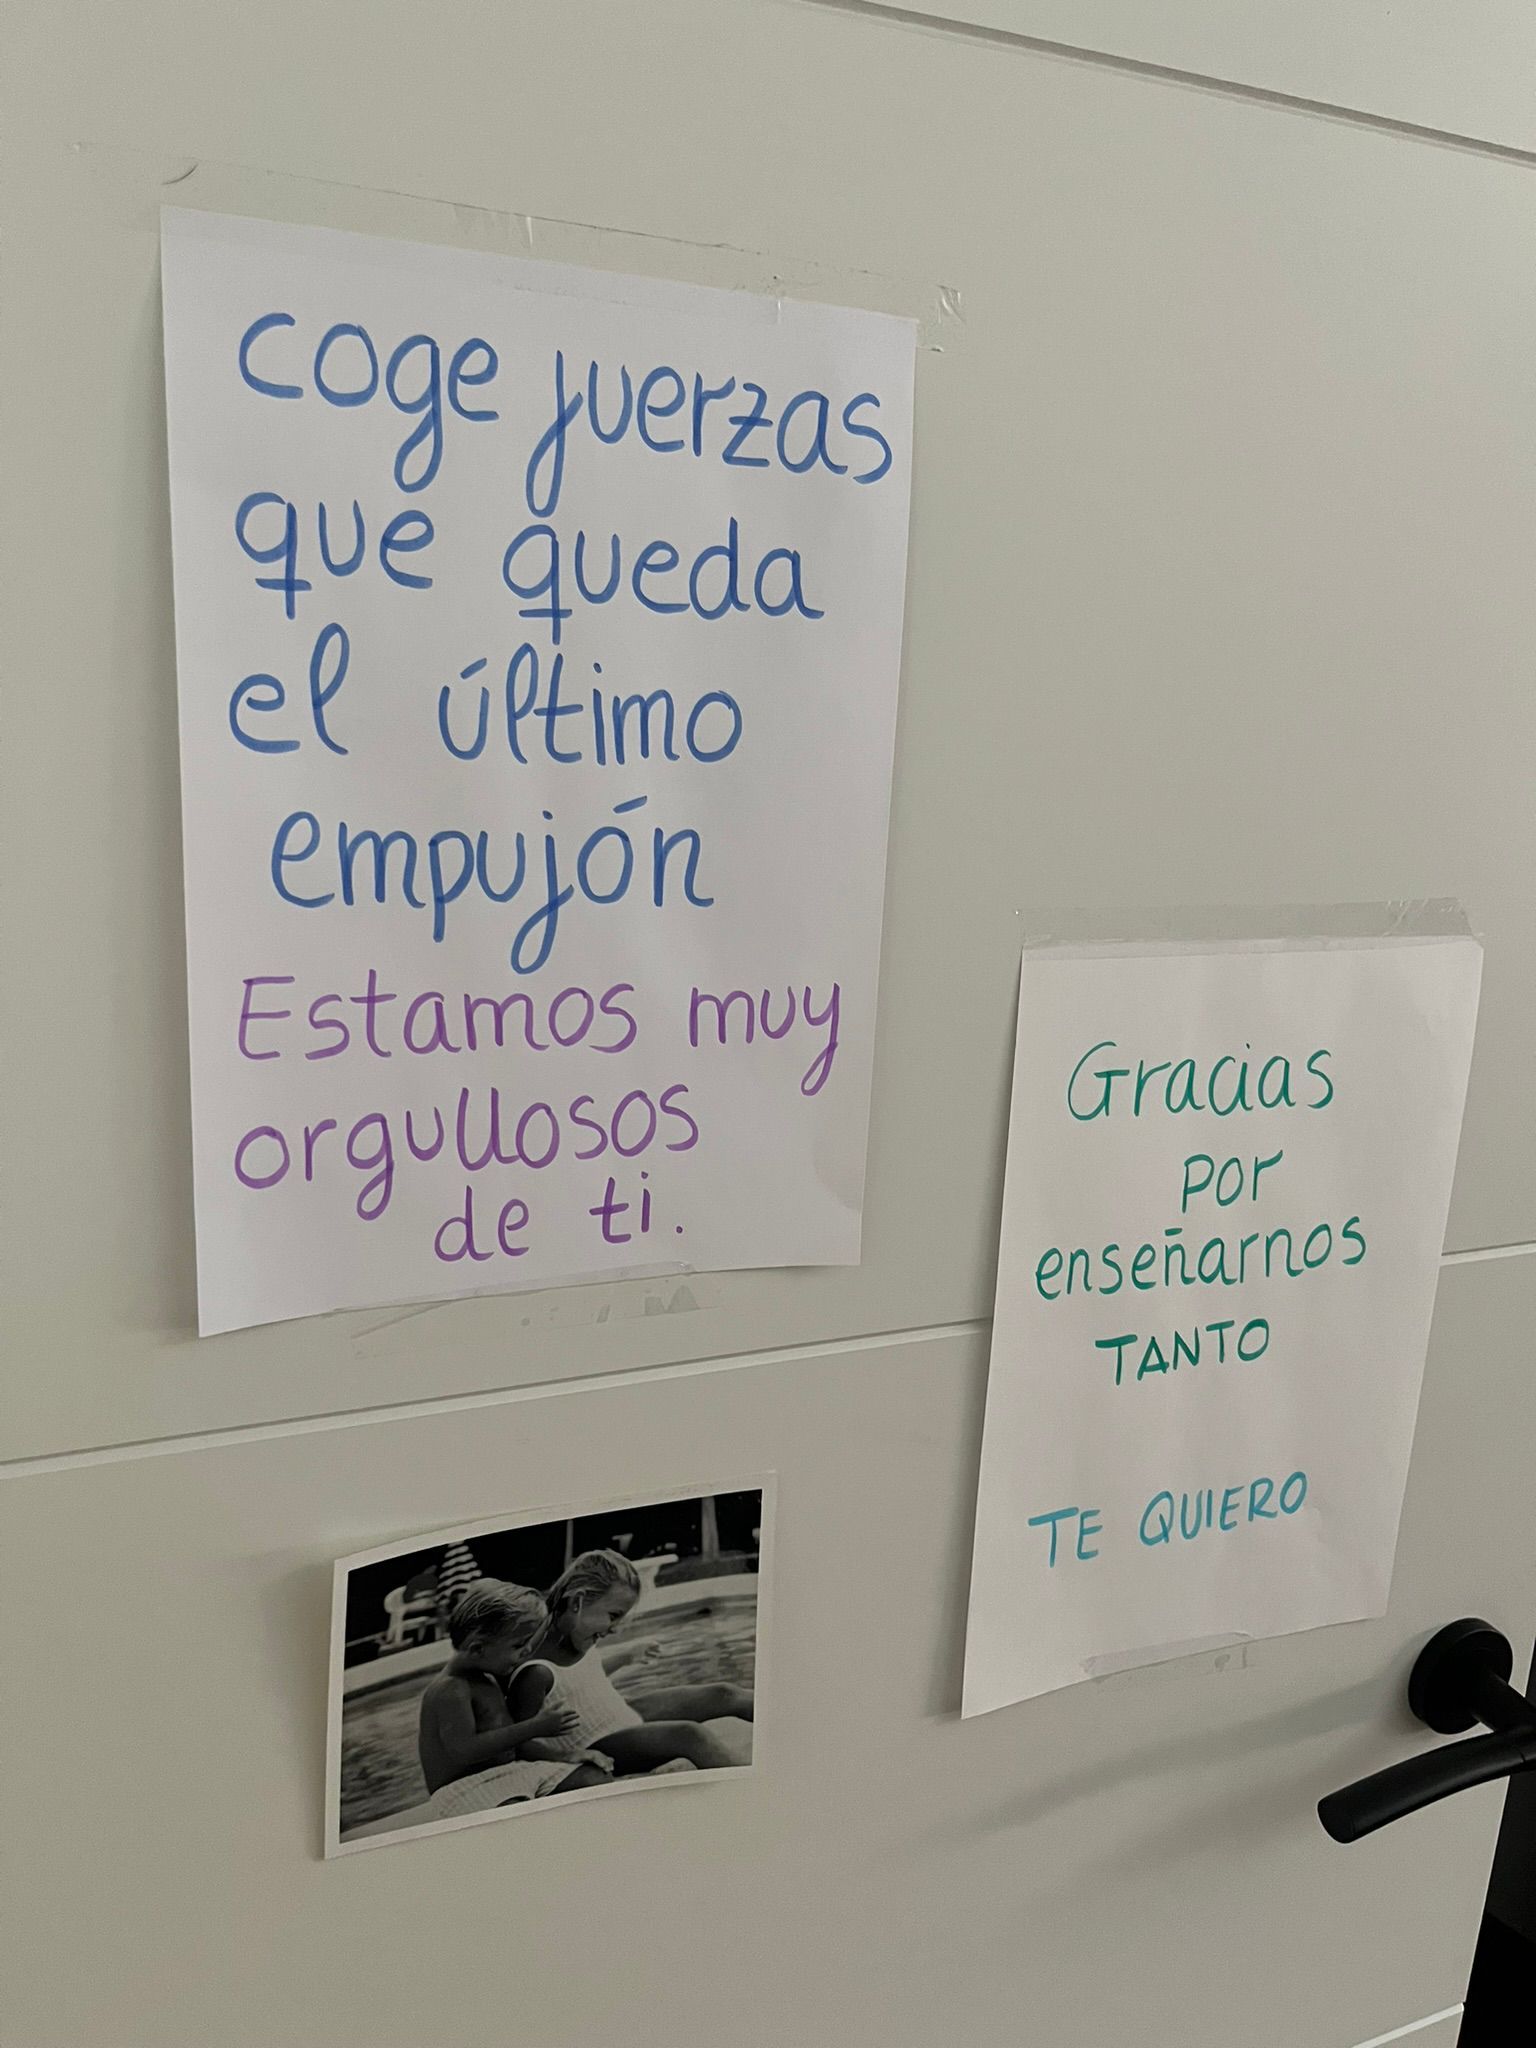 coge fuerzas
que queda
el último
empujón
Estamos muy
orgullosos
de ti.
Gracias
por
enseñarnos
TANTO
TE QUIERO